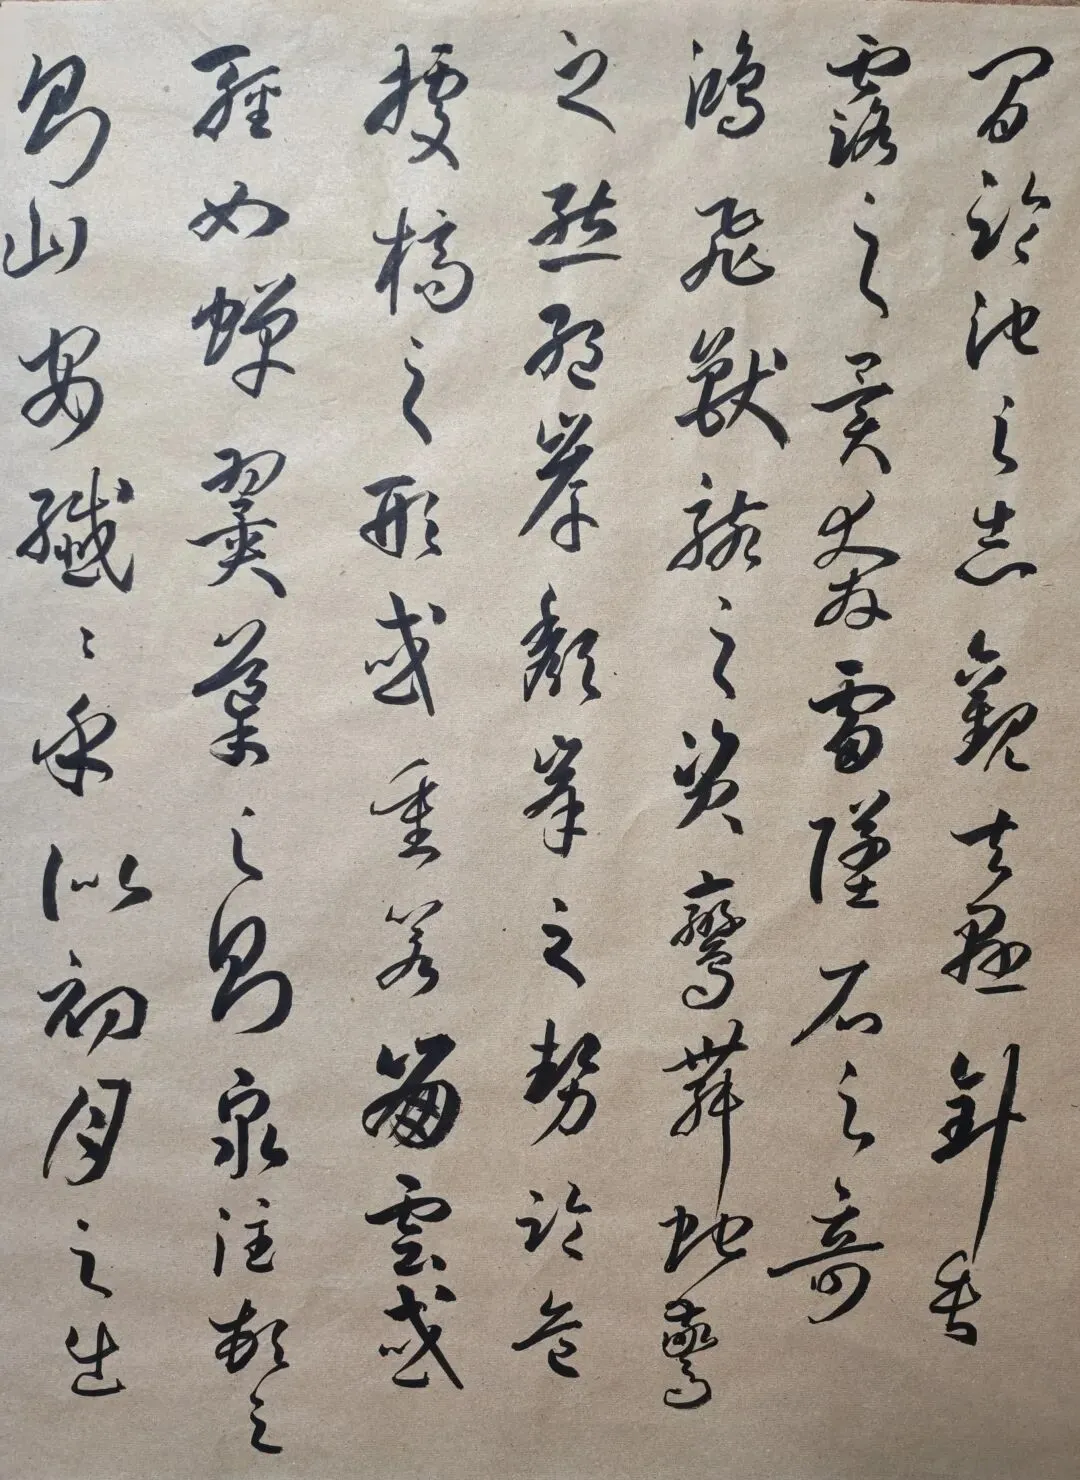 間臨池之志觀夫懸針垂
露之異奔雷墜石之奇
鴻飛獸駭之資鸞舞蛇驚
之態絕岸頹峯之勢臨危
據槁之形或重若崩雲或
輕如蟬翼導之則泉注頓之
則山安纖〻乎似初月之出